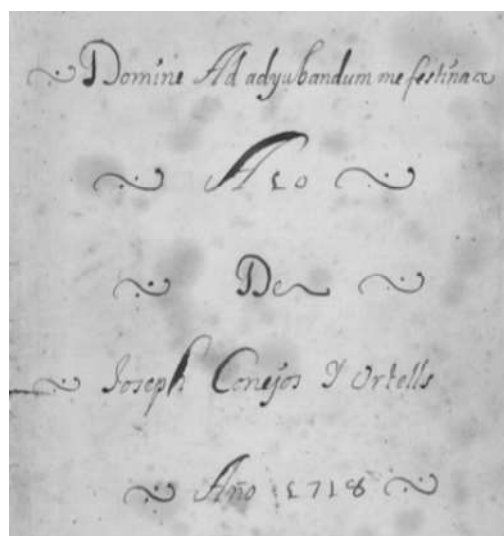 Domine Ad adyubandum me festina
A 10
De
Joseph Conejos Y Ortells
Año 1718